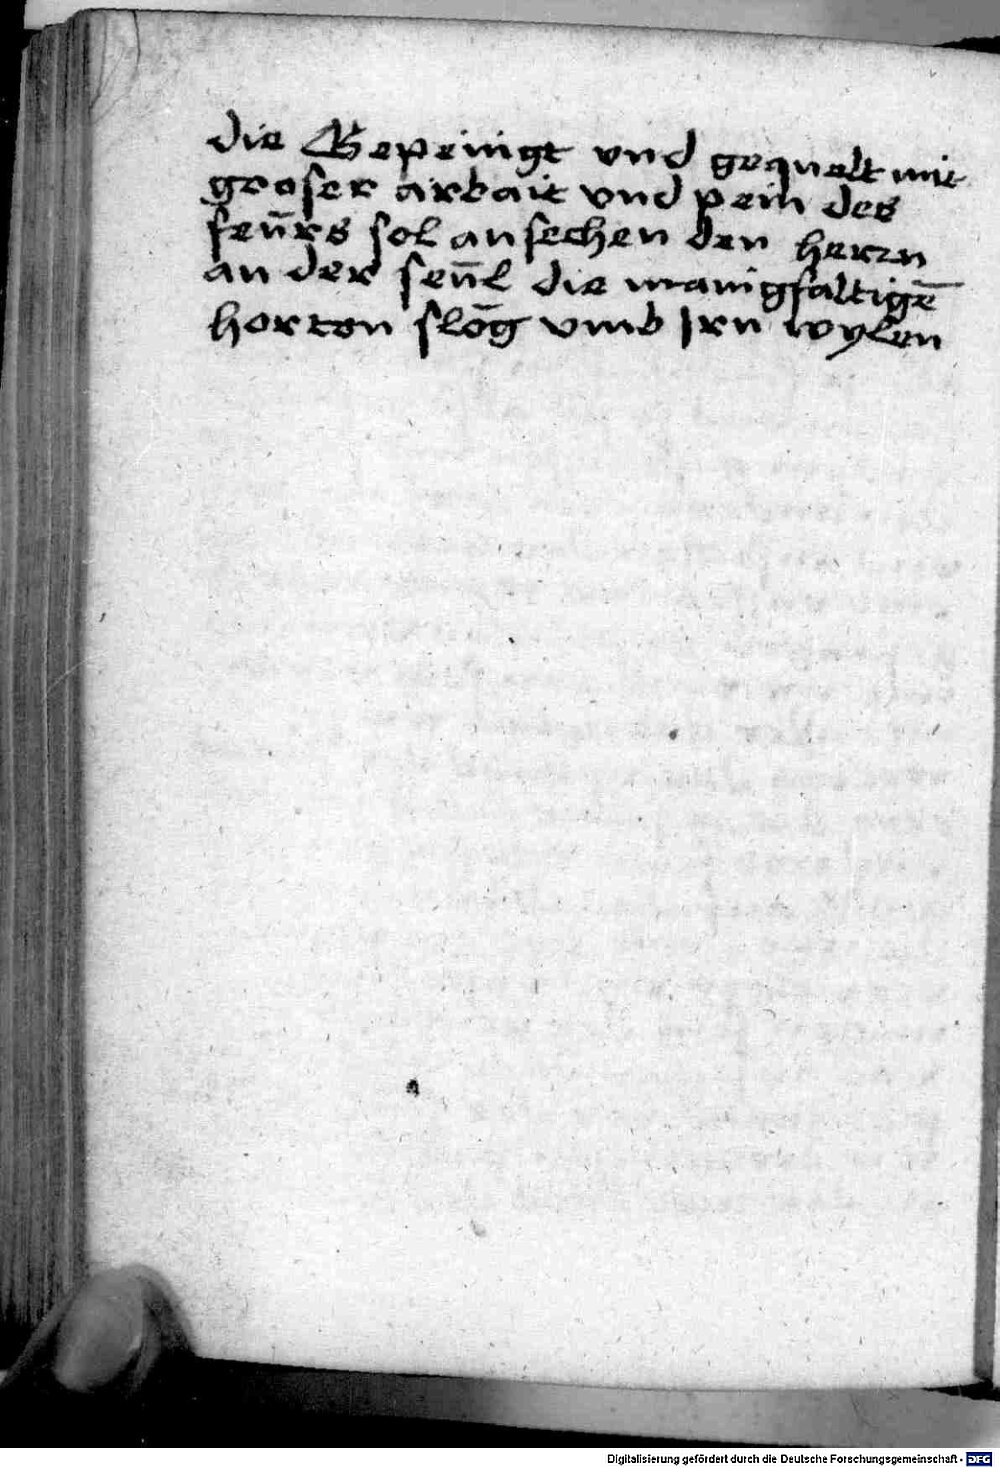 die Gepeinigt vnd gequelt mit
groser arbait vnd pein des
feũrs sol an sechen den herrn
an der seũl die manigfaltigē
horten slōg vmb Irn wylen
Digitalisierung gefördert durch die Deutsche Forschungsgemeinschaft - DFG